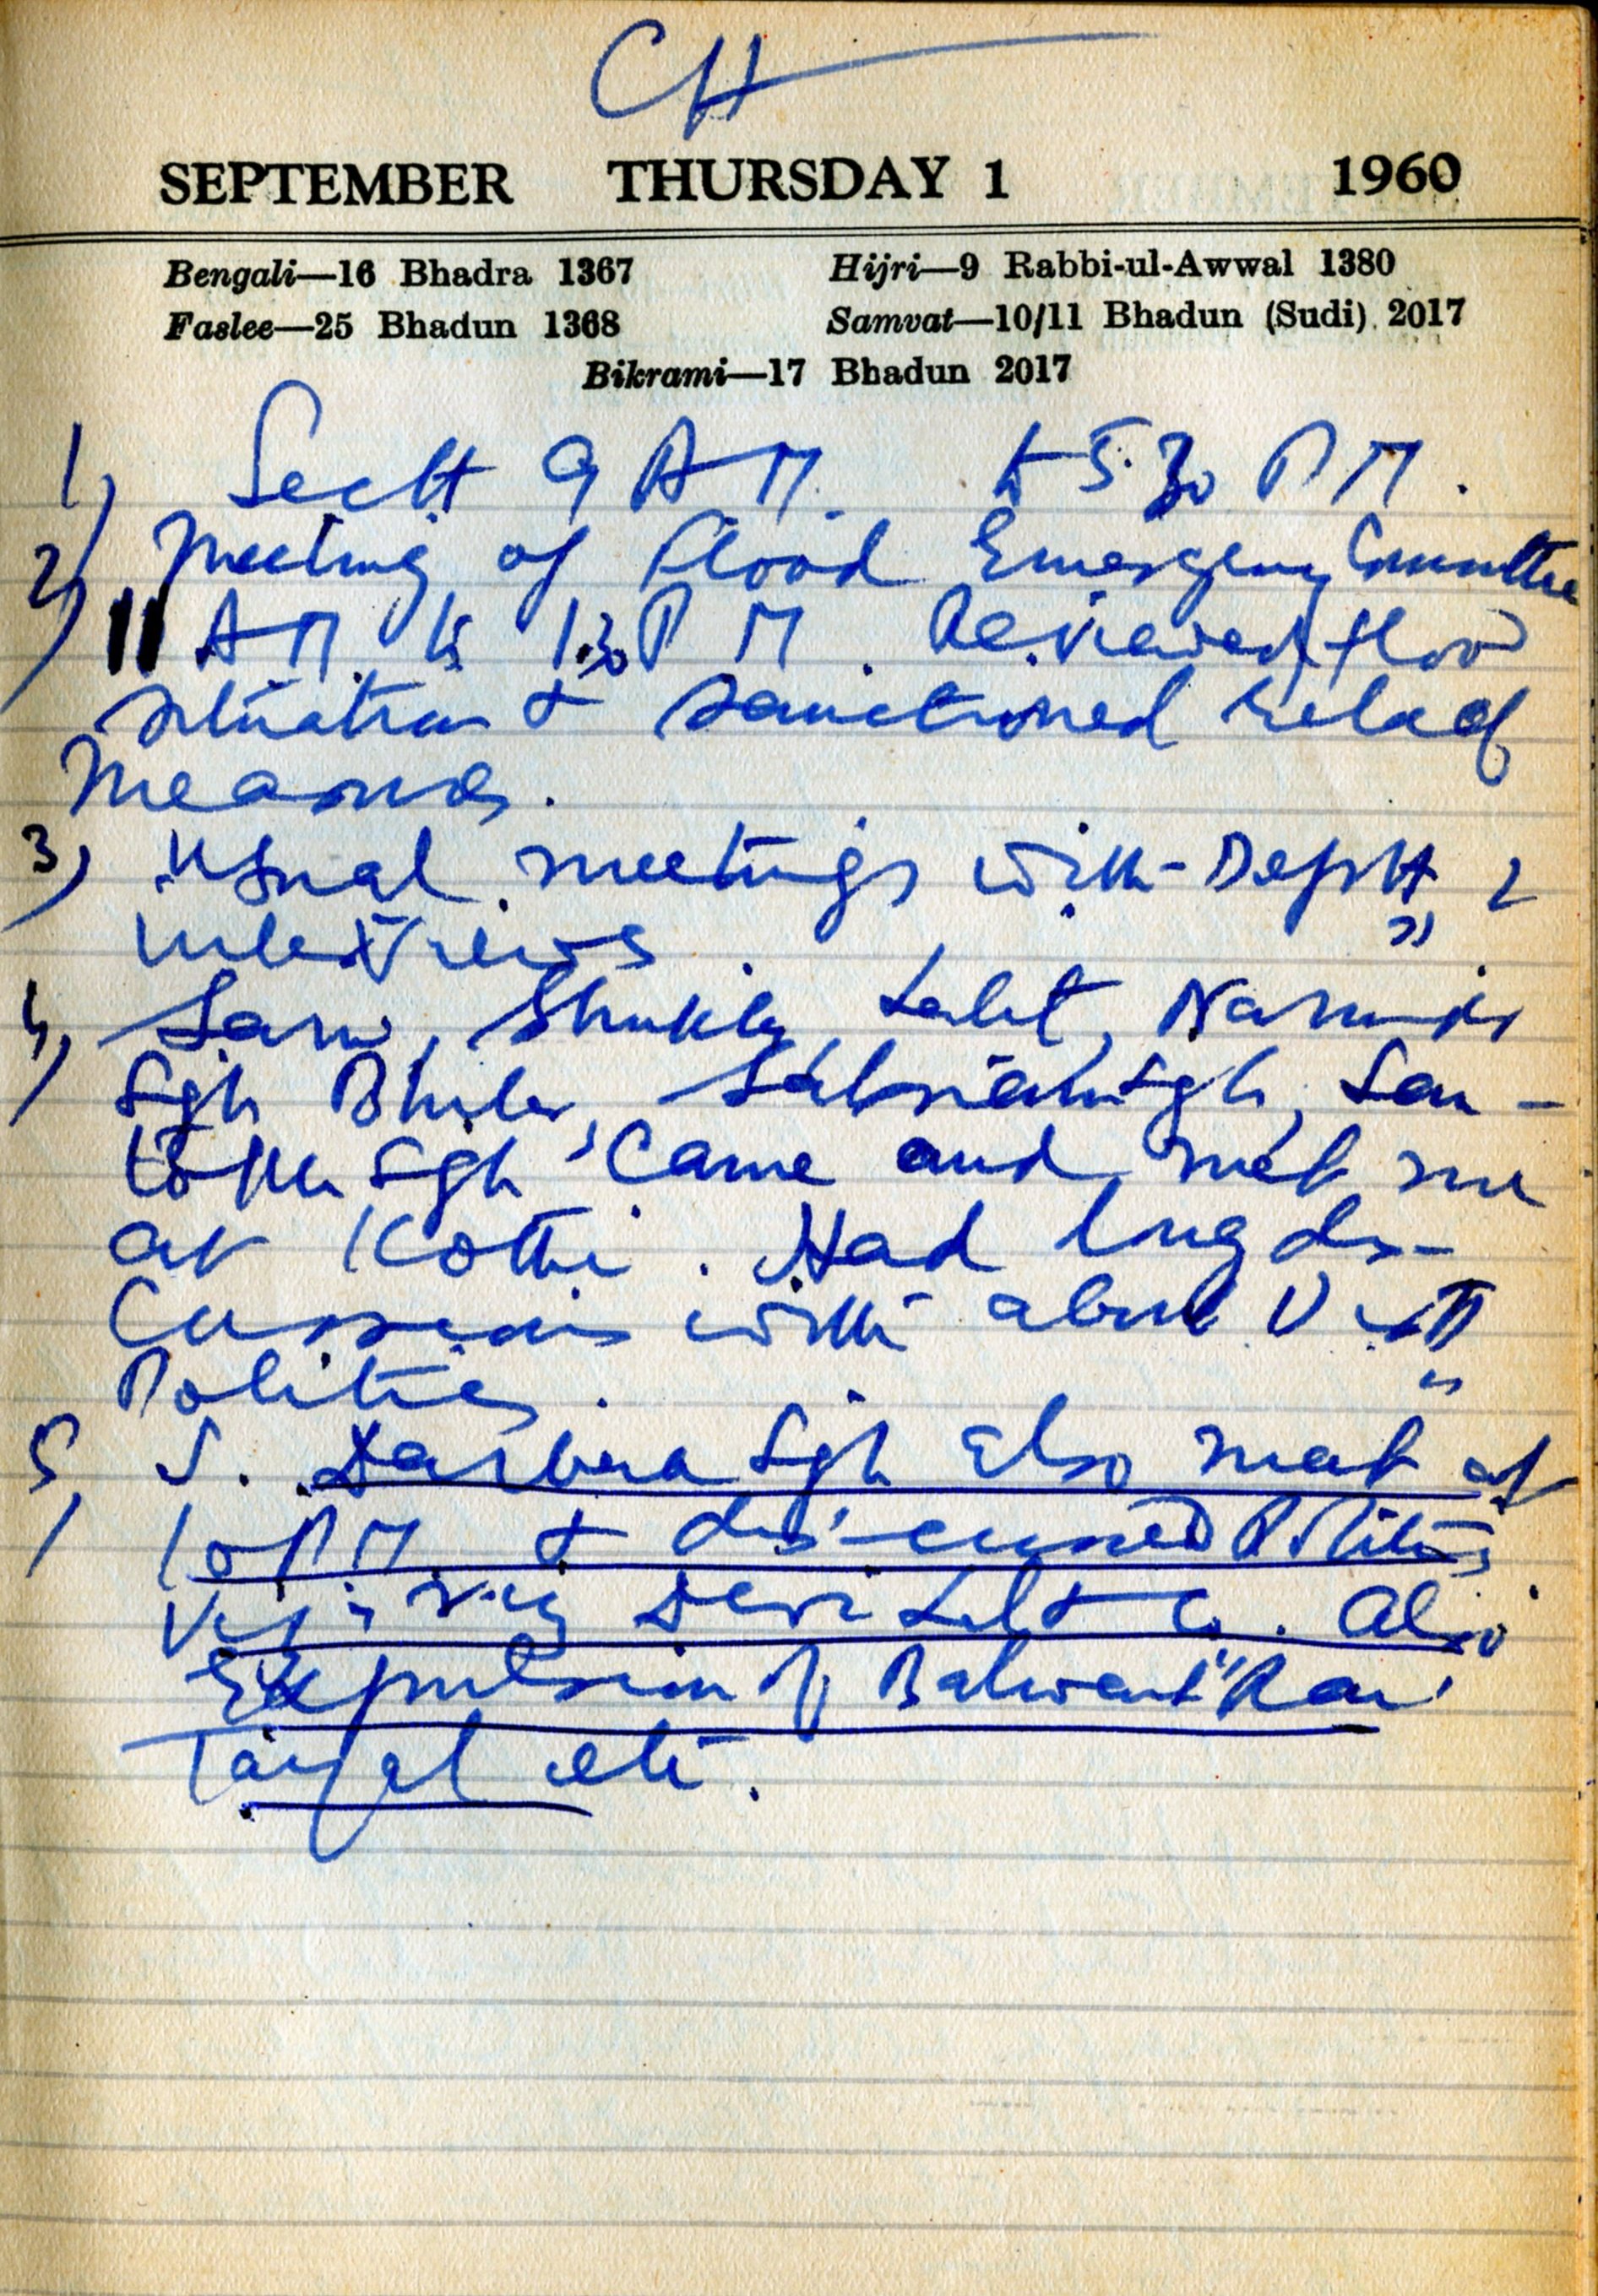 CH
SEPTEMBER THURSDAY 1 1960
Bengali—16 Bhadra 1367 Hijri—9 Rabbi-ul-Awwal 1380
Faslee—25 Bhadun 1368 Samvat—10/11 Bhadun (Sudi) 2017
Bikrami—17 Bhadun 2017
1) Sectt 9 A M. to 5.30 P M.
2) Meeting of Flood Emergency Committee
11 A M. to 1.30 P M. Reviewed flood
situation & sanctioned relief
measures.
3) Usual meetings with Deptt &
interviews.
4) Shukla, Narinder
Sgh Sgh, San-
tokh Sgh came and met me
at Kothi. Had long dis-
cussions with about Distt
Politics.
5) S. Darbara Sgh also met at
10 P M & discussed Politics
Devi Lal & Co. Also
Expulsion of Balwant Rai
Tayal etc.